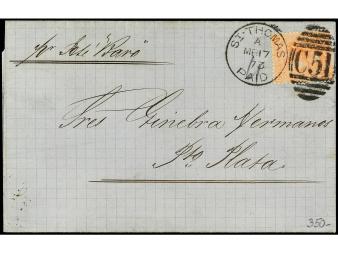 pr José "Baró"
ST. THOMAS
A
MR 17
73
PAID
C51
Tres Ginebra Hermanos
Pto Plata
350-